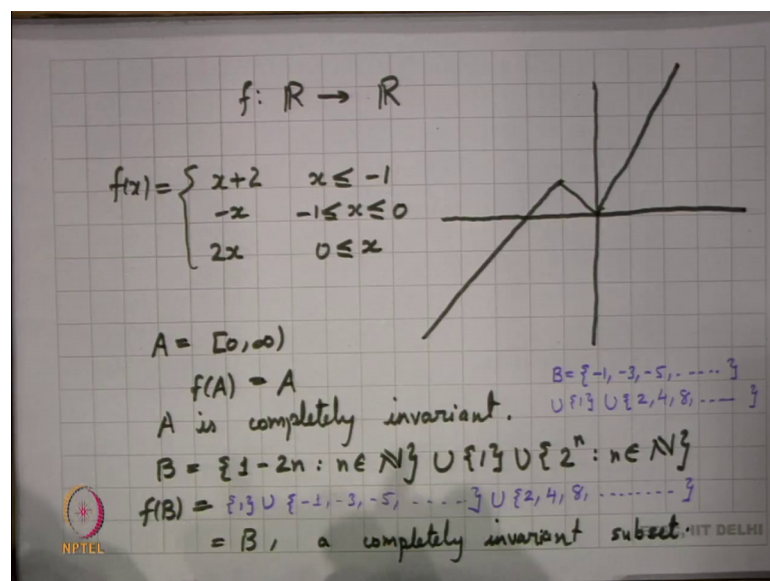 f: ℝ → ℝ
f(x) = { x+2 x ≤ -1
-x -1 ≤ x ≤ 0
2x 0 ≤ x
A = [0, ∞)
f(A) = A
A is completely invariant.
B = {-1, -3, -5, ..... }
∪ {1} ∪ {2, 4, 8, .... }
B = {1-2n : n ∈ ℕ} ∪ {1} ∪ {2ⁿ : n ∈ ℕ}
f(B) = {1} ∪ {-1, -3, -5, ......} ∪ {2, 4, 8, ........ }
= B, a completely invariant subset.
NPTEL
IIT DELHI